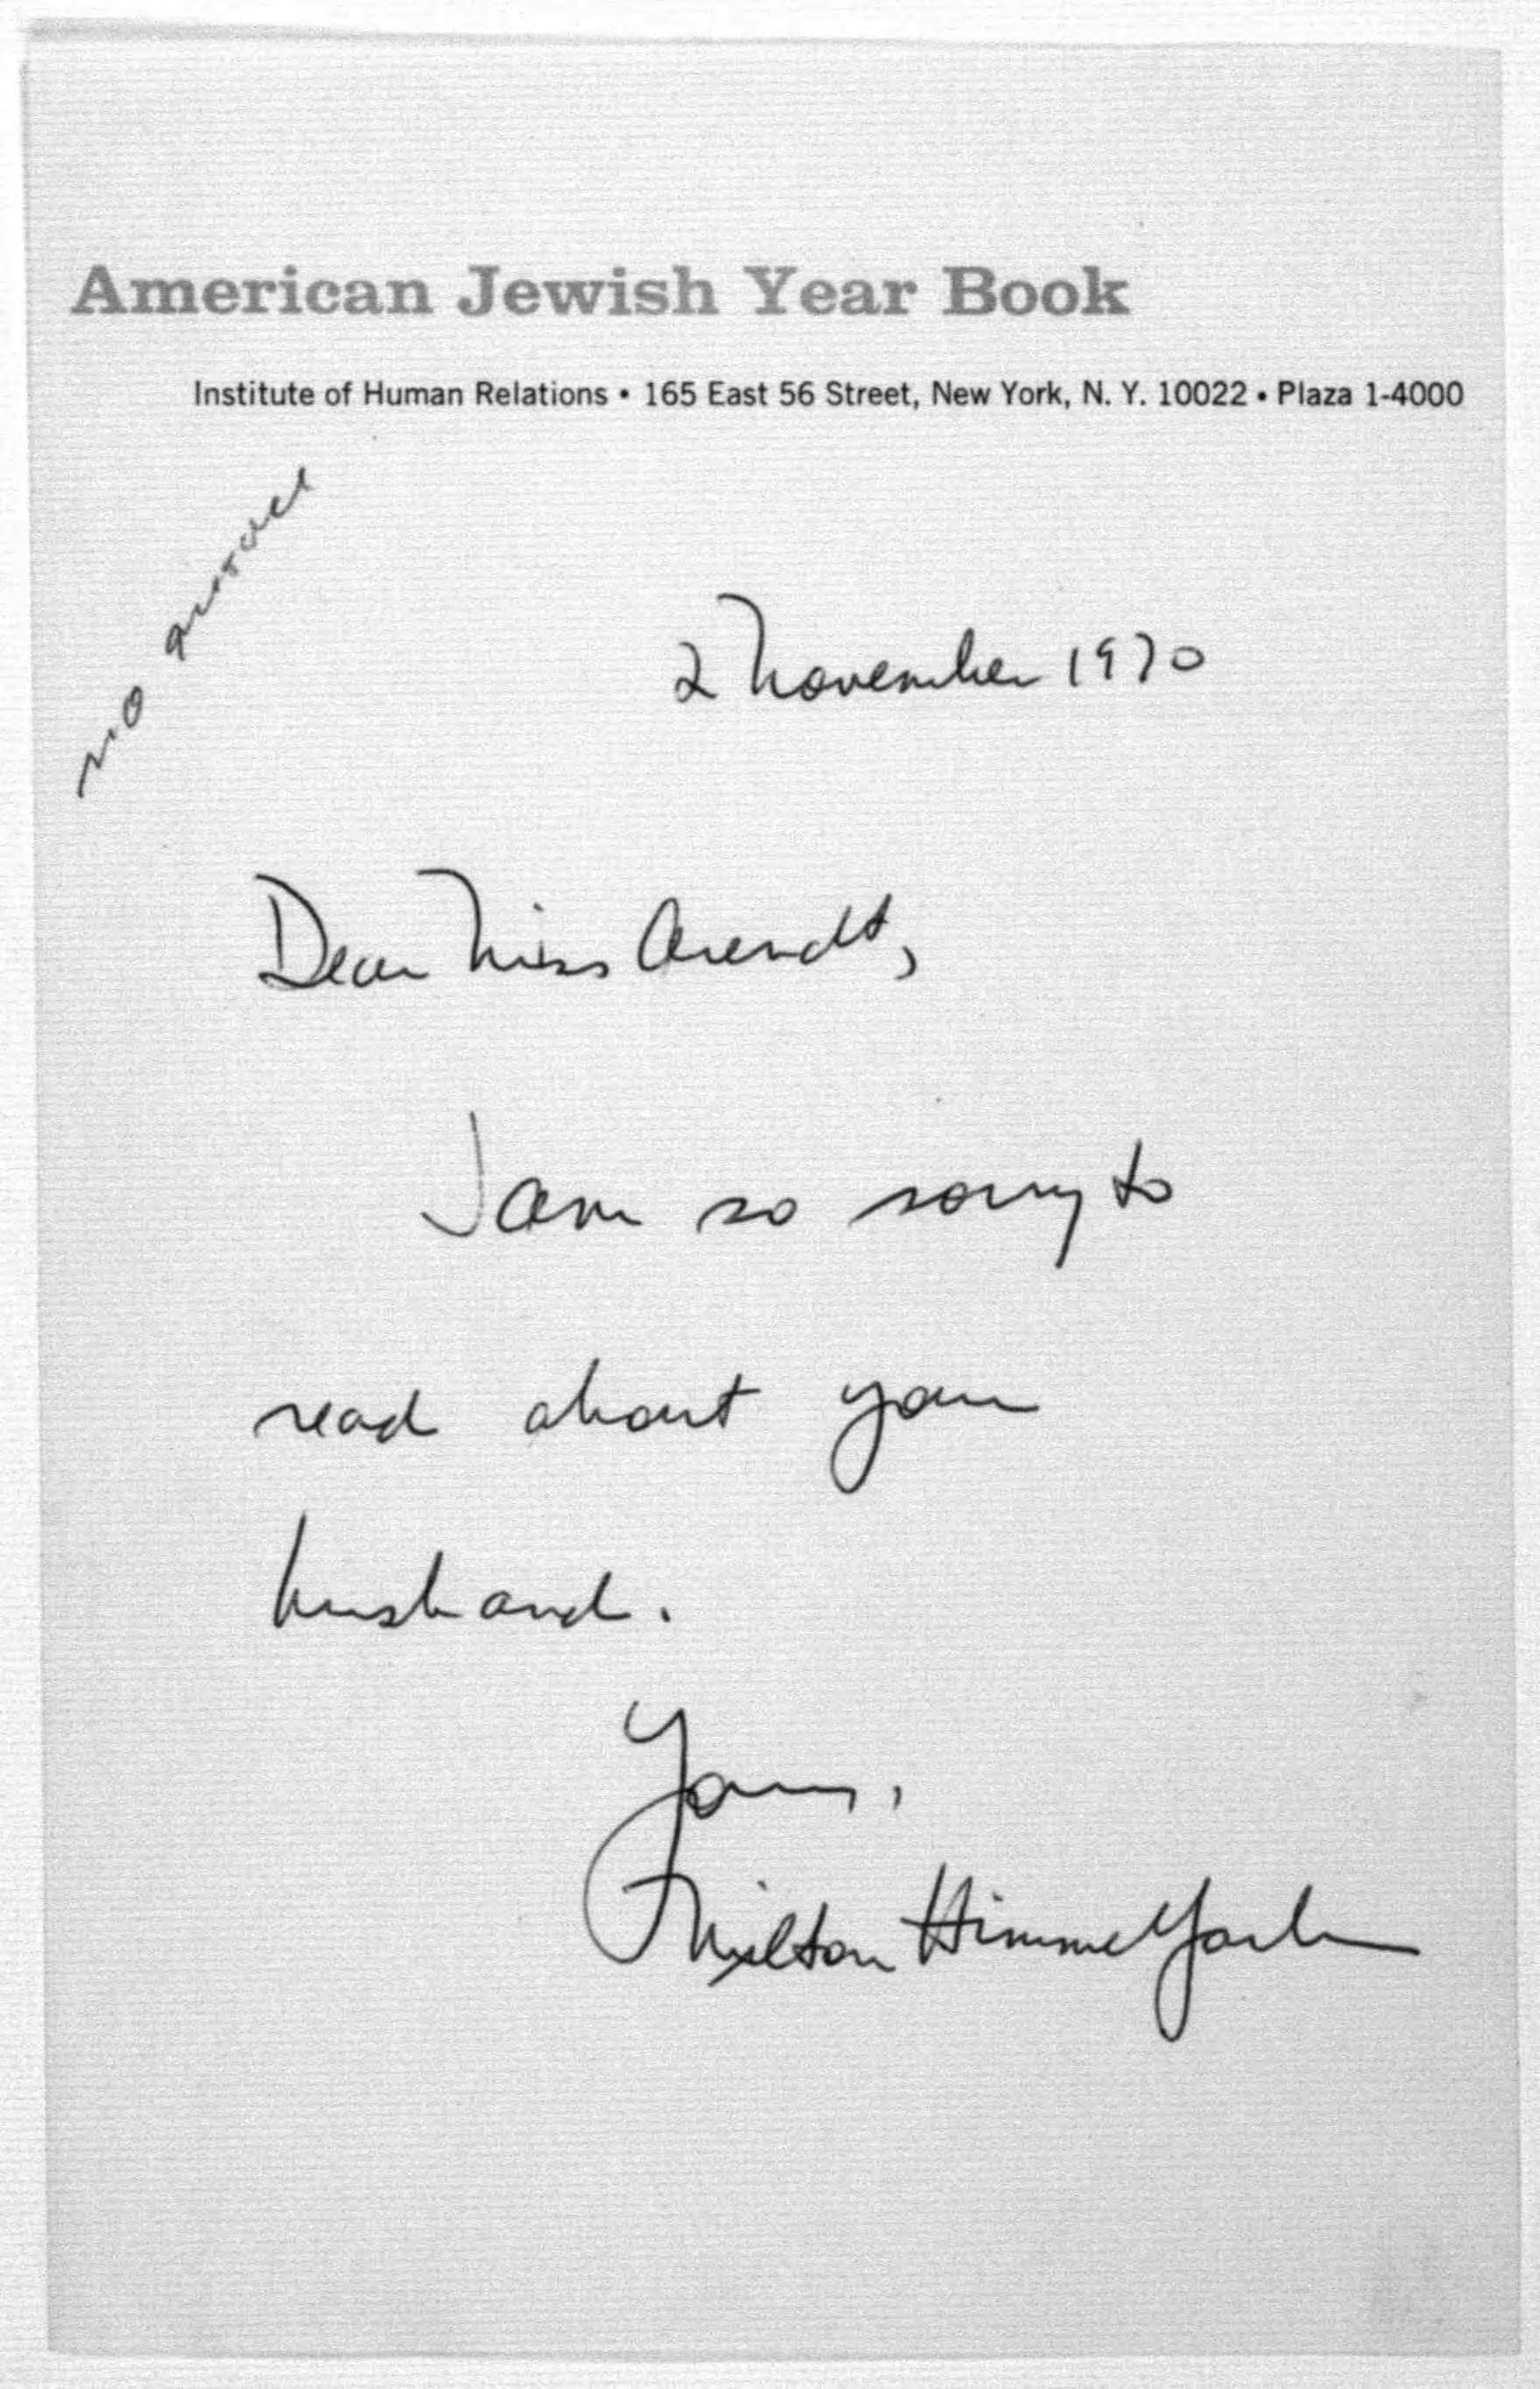 American Jewish Year Book
Institute of Human Relations • 165 East 56 Street, New York, N. Y. 10022 • Plaza 1-4000
no
2 November 1970
Dear Miss Arendt,
I am so sorry to
read about your
husband.
Yours,
Milton Himmelfarb